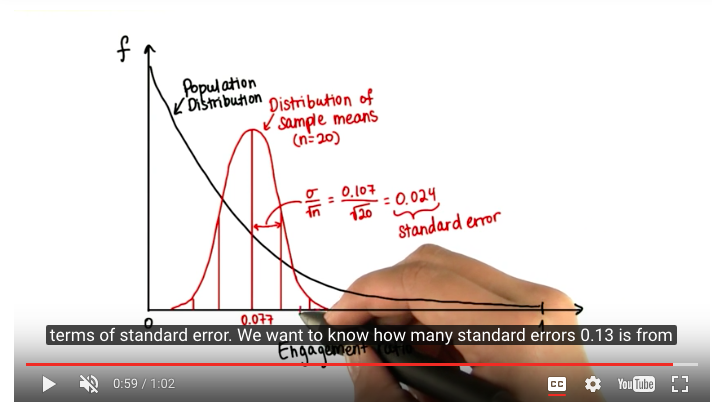 f
Population
Distribution
Distribution of
sample means
(n=20)
σ/√n = 0.107/√20 = 0.024
standard error
0
0.077
1
terms of standard error. We want to know how many standard errors 0.13 is from
Engagement
0:59 / 1:02
CC
YouTube